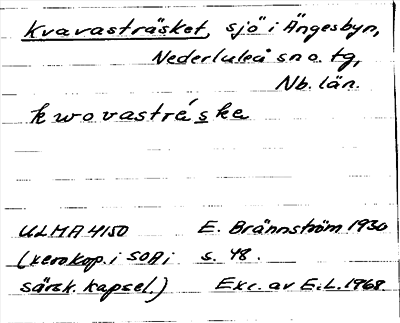 Kvavasträsket, sjö i Ängesbyn,
Nederluleå sn o. tg,
Nb. län.
kwovastráske
ULMA 4150 E. Brännström 1930
(xerokop. i SOA i s. 48.
särsk. kapsel.) Exc. av E.L. 1968.